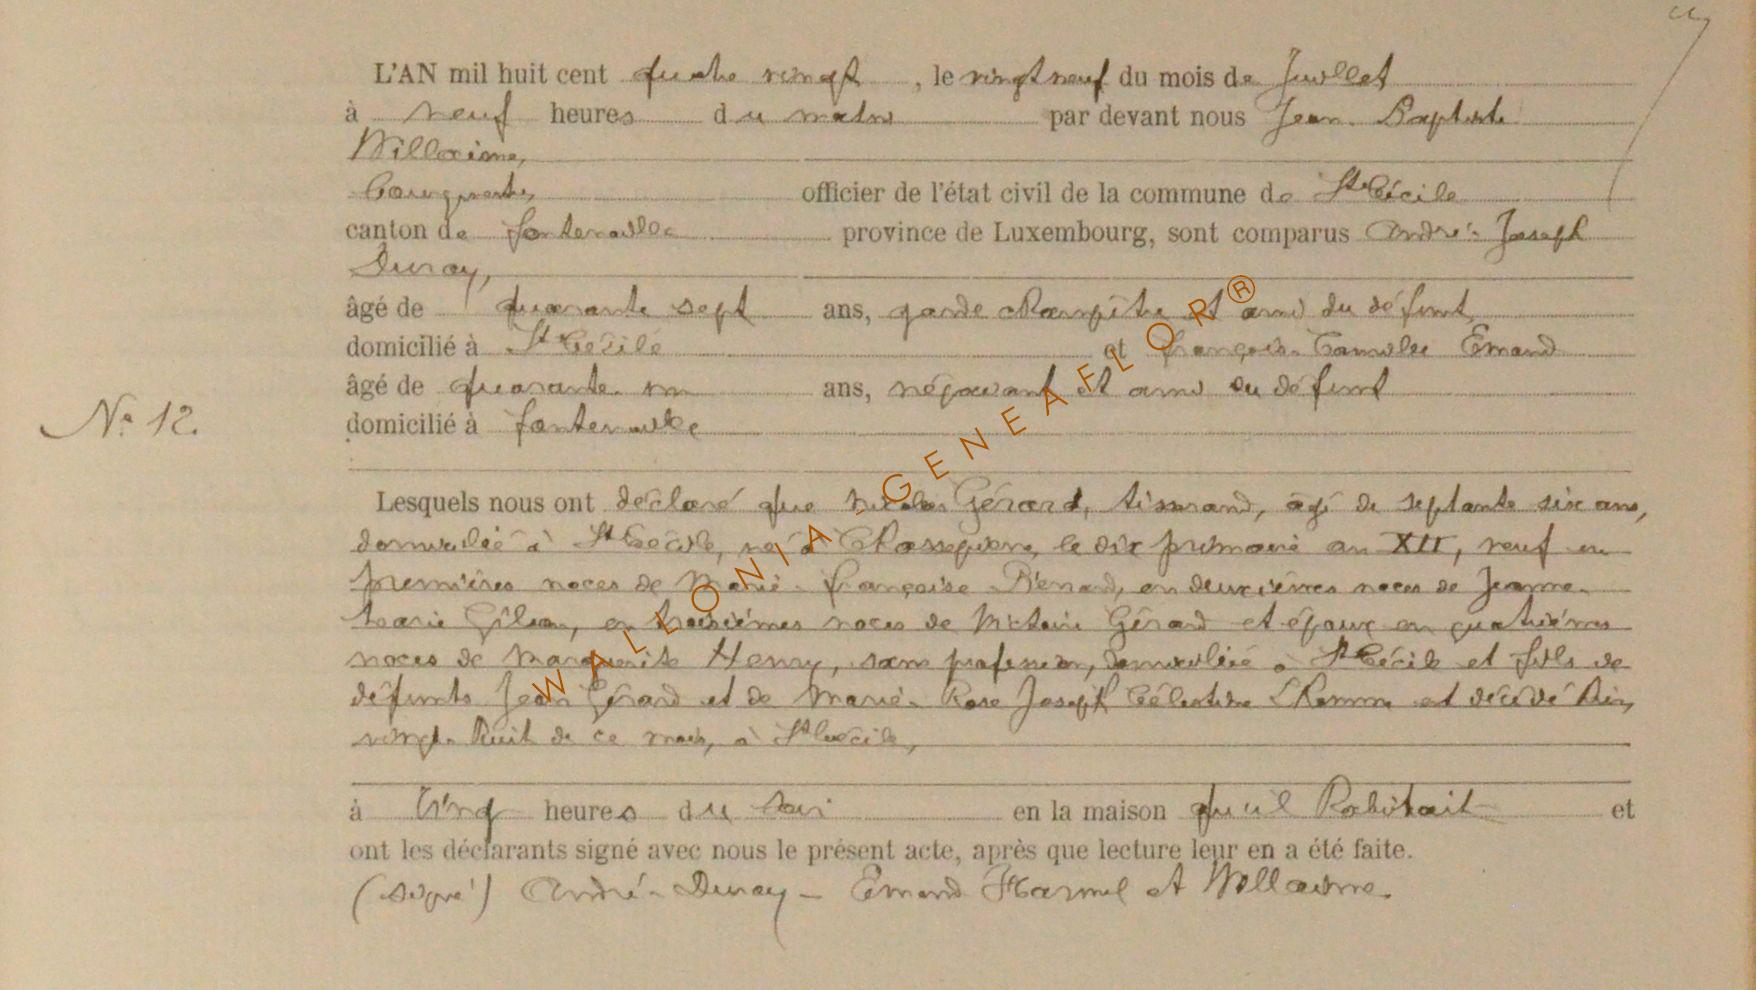 L'AN mil huit cent quatre vingt, le vingt neuf du mois de Juillet
à neuf heures du matin par devant nous Jean-Baptiste
Willaime,
Bourgmestre, officier de l'état civil de la commune de Ste Cécile
canton de florenville province de Luxembourg, sont comparus André-Joseph
Duray,
âgé de quarante sept ans, garde champêtre et ami du défunt,
domicilié à Ste Cécile et françois-Camille Emand
âgé de quarante un ans, négociant et ami du défunt
domicilié à florenville
N° 12.
Lesquels nous ont déclaré que Nicolas Gérard, tisserand, âgé de septante six ans,
domicilié à Ste Cécile, né à Chassepierre, le dix primaire an XII, veuf en
premières noces de Marie-françoise Pienard, en deuxièmes noces de Jeanne-
Marie Gilson, en troisièmes noces de Victoire Gérard et époux en quatrièmes
noces de Marguerite Henry, sans profession, domiciliée à Ste Cécile et fils de
défunts Jean Gérard et de Marie-Rose Joseph Célestine Lhomme est décédé hier,
vingt-huit de ce mois, à Ste Cécile,
à Cinq heures du soir en la maison qu'il habitait et
ont les déclarants signé avec nous le présent acte, après que lecture leur en a été faite.
(signé) André-Duray - Emand et Willaime.
WALLONIA-GENEAFLOR®